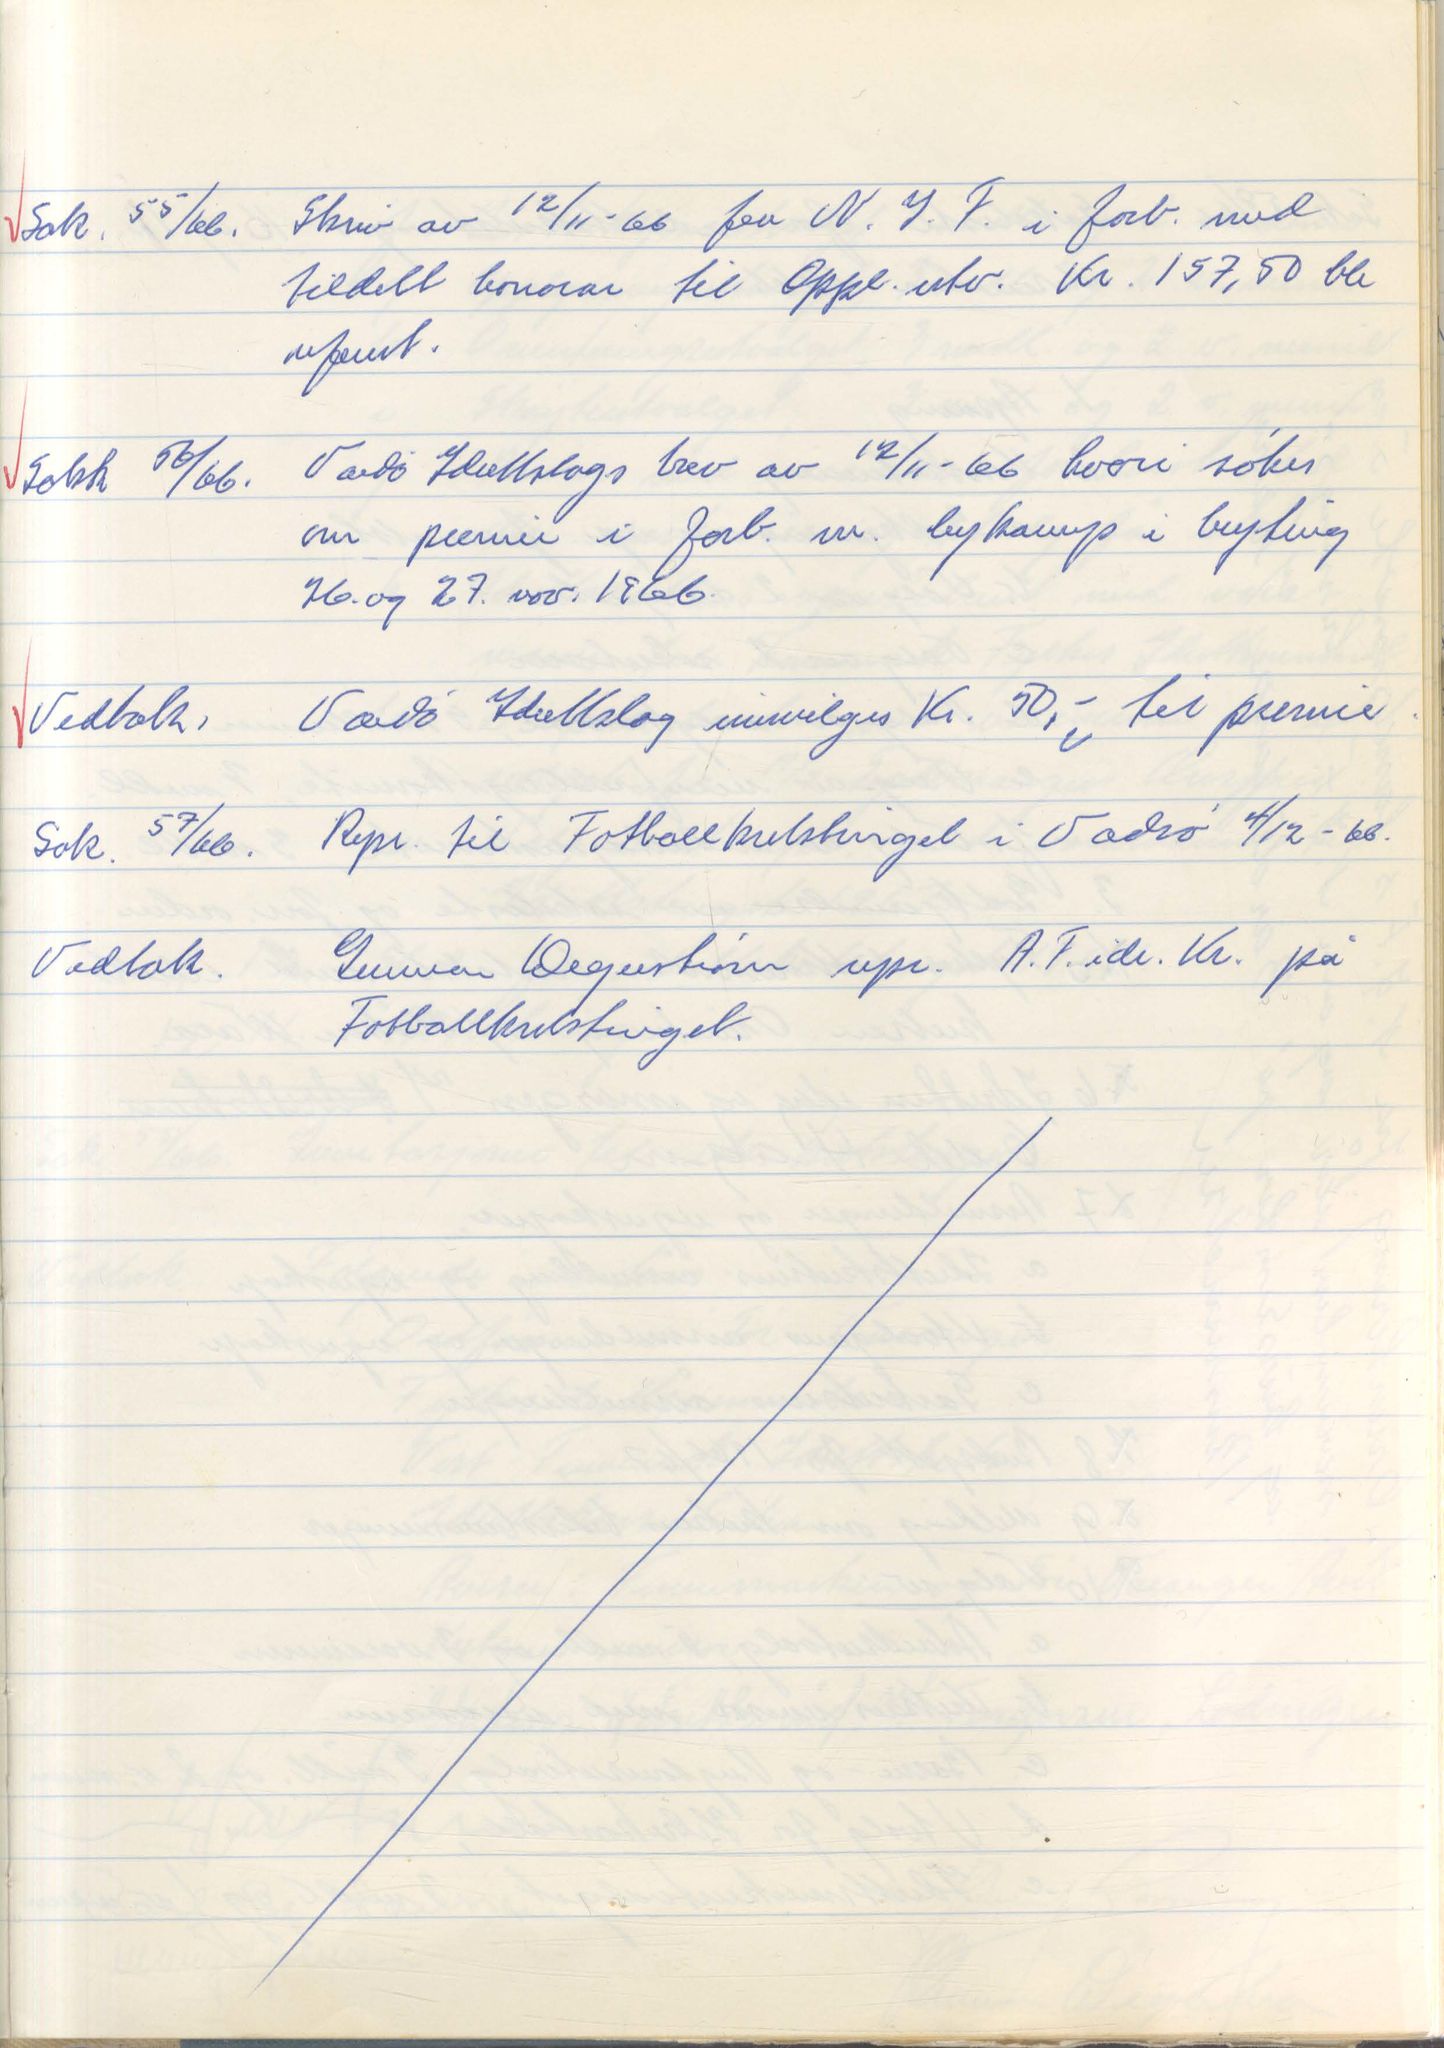 Sak. 55/66. Skriv av 12/11-66 fra N. I. F. i forb. med
tildelt honorar til Oppl. utv. Kr. 157,50 ble
referert.
Sak 56/66. Vardö Idrettslags brev av 12/11-66 hvori söker
om premie i forb. m. bykamp i bryting
26. og 27. nov. 1966.
Vedtak. Vardö Idrettslag innvilges Kr. 50,- til premie.
Sak. 57/66. Repr. til Fotballkretstinget i Vadsö 4/12-66.
Vedtak. Gunnar repr. A.F. idr. kr. på
Fotballkretstinget.